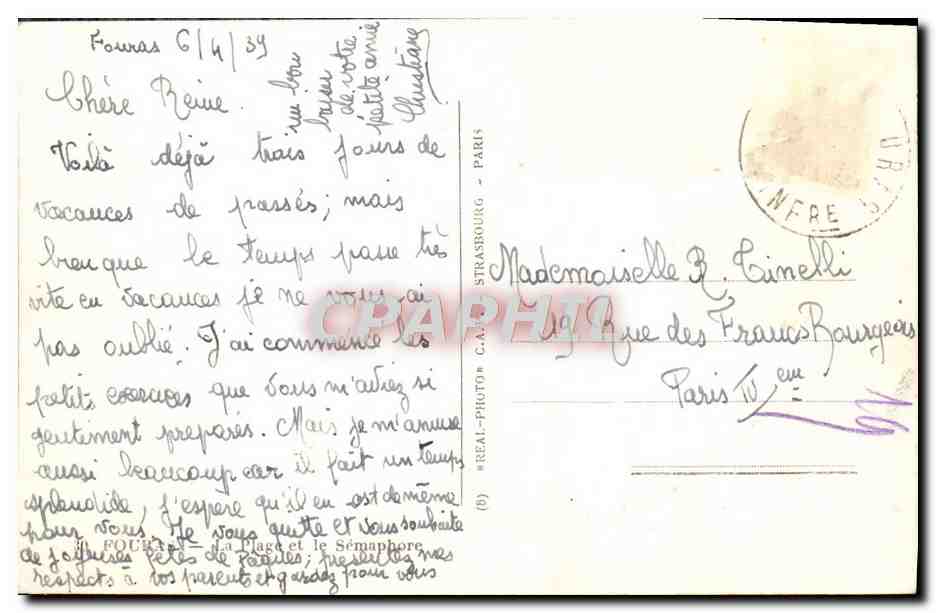 Fouras 6/4/39
Chère Reine.
Voilà déjà trois jours de
vacances de passés; mais
bien que le temps passe très
vite en vacances je ne vous ai
pas oublié. J'ai commencé les
petits exercices que vous m'aviez si
gentiment préparés. Mais je m'amuse
aussi beaucoup car il fait un temps
splendide, j'espère qu'il en est de même
pour vous. Je vous quitte et vous souhaite
de joyeuses fêtes de Pâques; présentez mes
respects à vos parents et gardez pour vous
un bon
baiser
de votre
petite amie
Christiane
FOURAS — La Plage et le Sémaphore
(8) "REAL-PHOTO" C.A.P. STRASBOURG - PARIS
CPAPHIL
URAS
INFRE
Mademoiselle R. Tinelli
19 Rue des Francs Bourgeois
Paris IV em